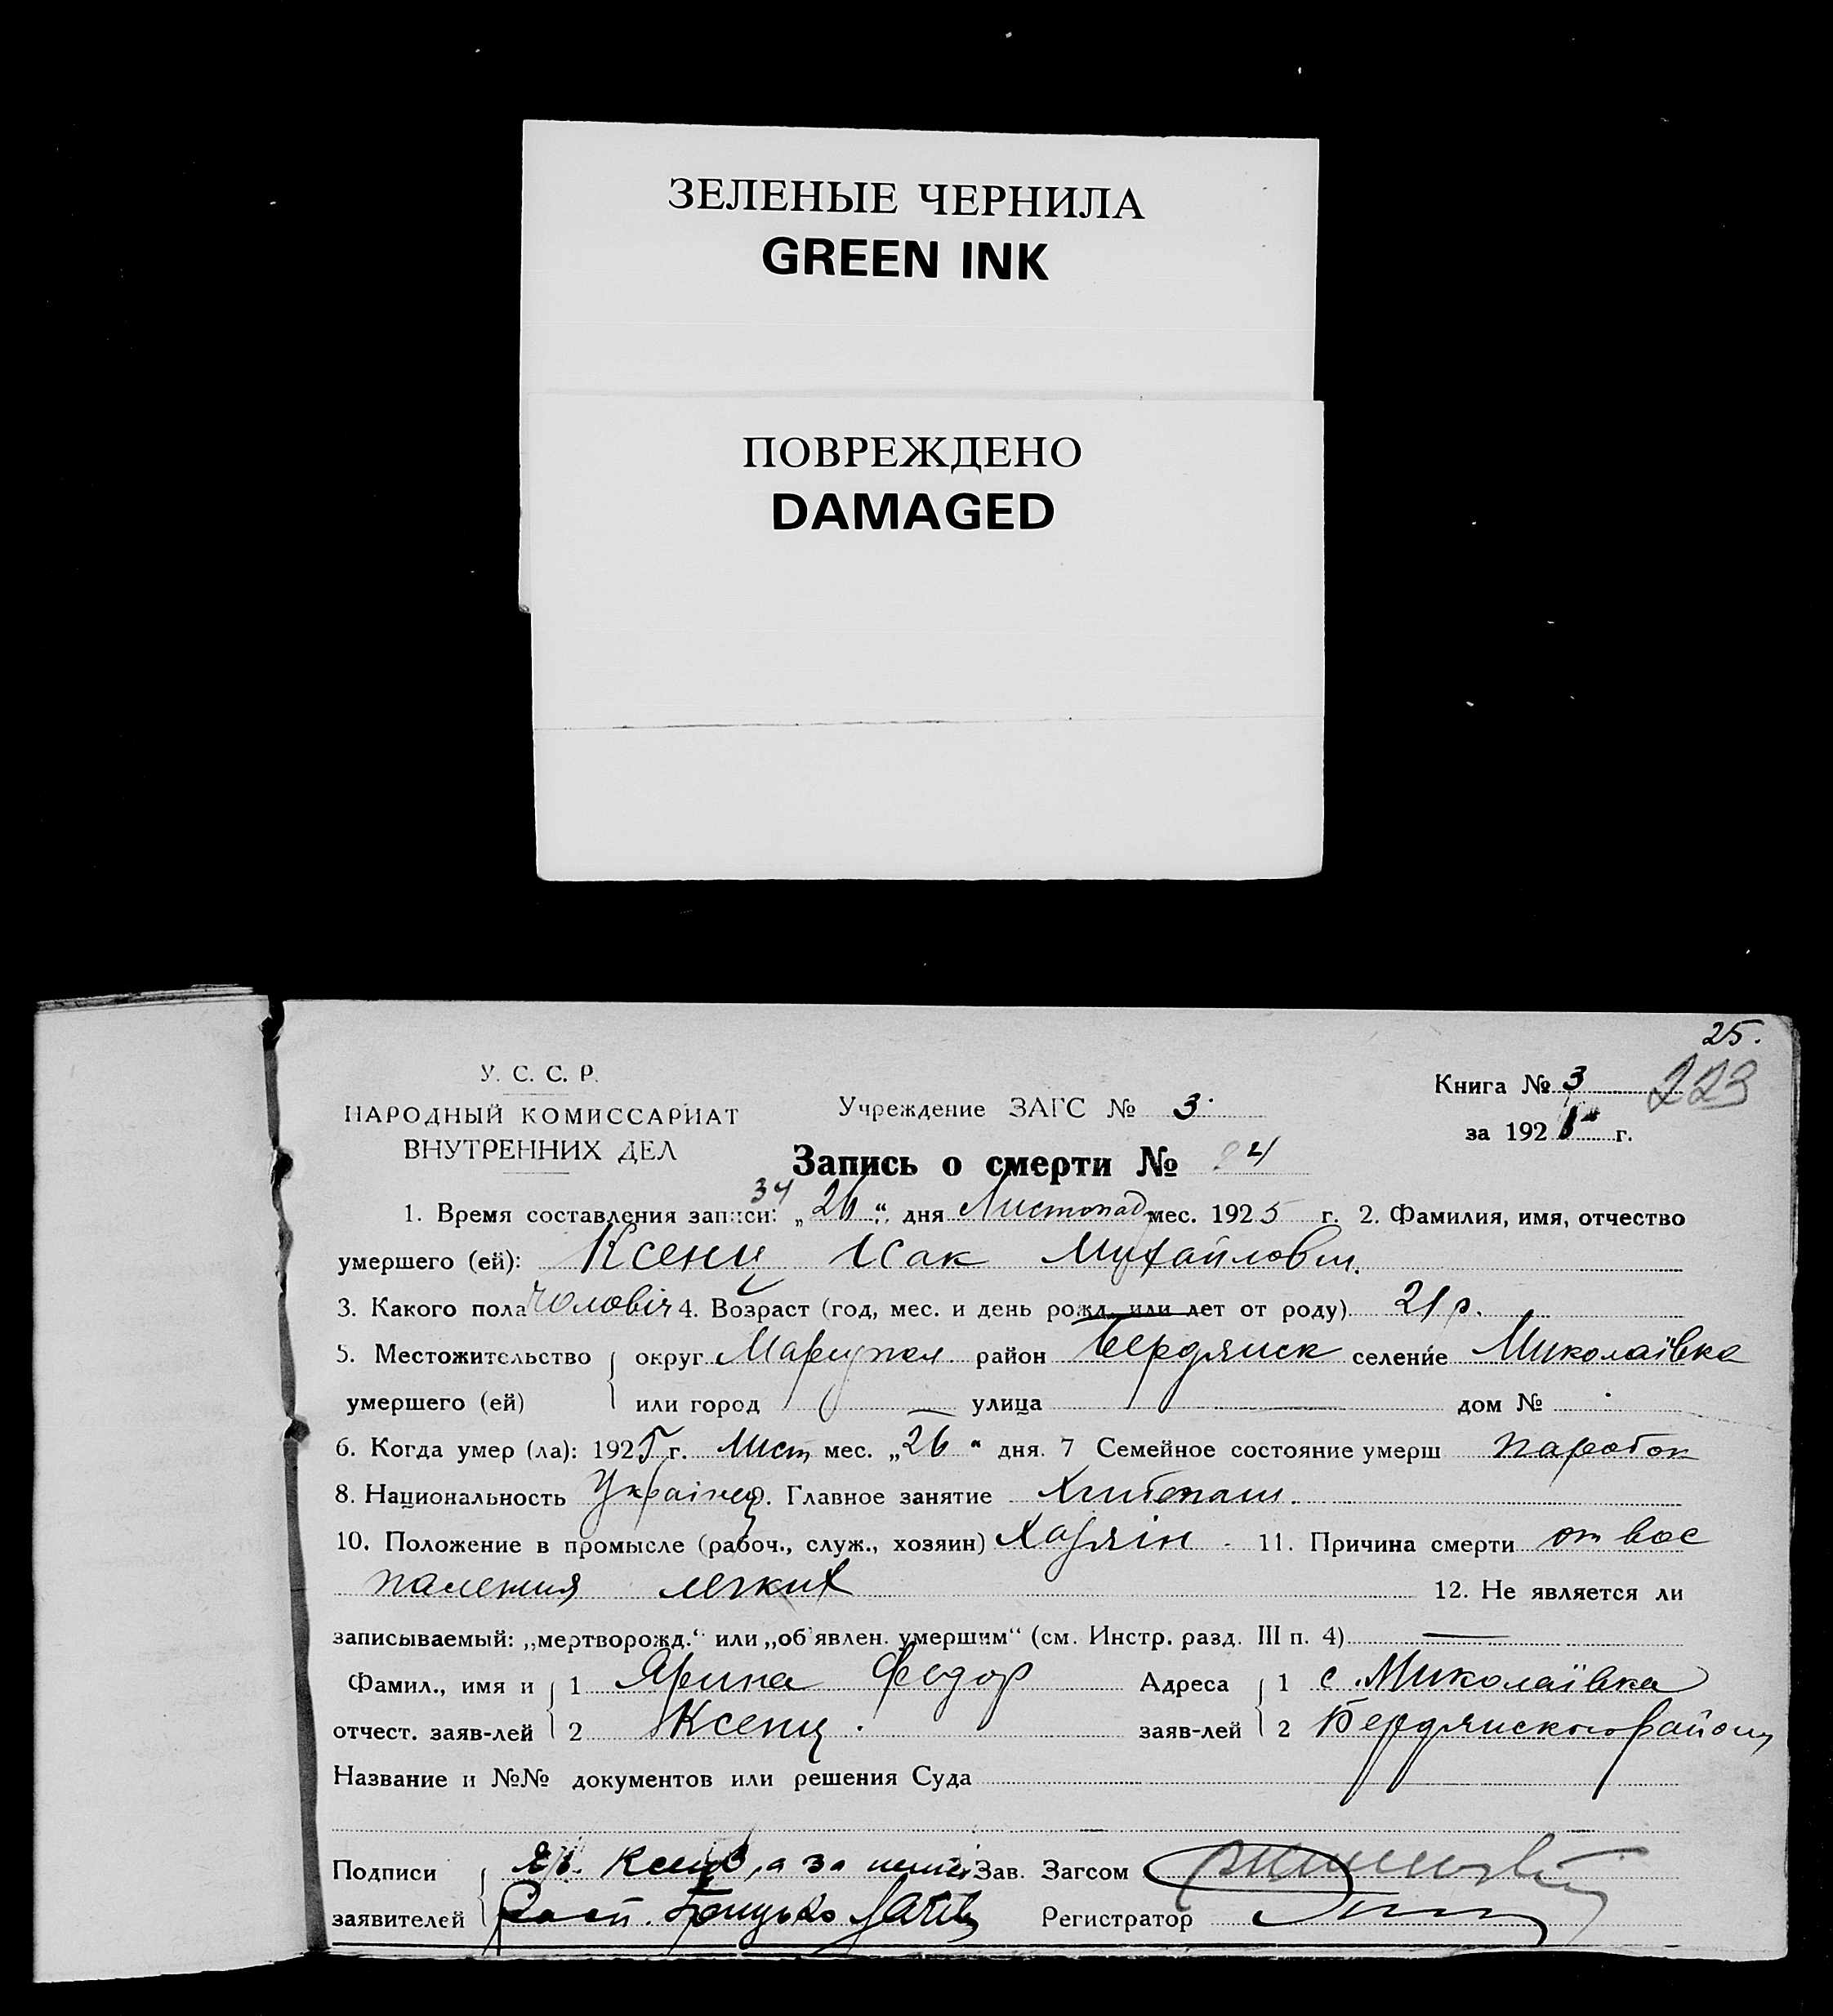 ЗЕЛЕНЫЕ ЧЕРНИЛА
GREEN INK
ПОВРЕЖДЕНО
DAMAGED
25.
У. С. С. Р.
НАРОДНЫЙ КОМИССАРИАТ
ВНУТРЕННИХ ДЕЛ
Учреждение ЗАГС № 3
Книга № 3 223
за 1925 г.
Запись о смерти № 24
34
1. Время составления записи: „26“ дня Листопад мес. 1925 г. 2. Фамилия, имя, отчество
умершего (ей): Ксенц Исак Михайлович.
3. Какого пола чоловіч 4. Возраст (год, мес. и день рожд. или лет от роду) 21 р.
5. Местожительство округ Мариупол район Бердянск селение Миколаївка
умершего (ей) или город улица дом №
6. Когда умер (ла): 1925 г. Лист мес. „26“ дня. 7 Семейное состояние умерш паробок
8. Национальность Українец. Главное занятие Хлибопаш.
10. Положение в промысле (рабоч., служ., хозяин) Хазяін 11. Причина смерти от вос
паления легких 12. Не является ли
записываемый: „мертворожд.“ или „об'явлен. умершим“ (см. Инстр. разд. III п. 4) —
Фамил., имя и 1 Ярина Федор Адреса 1 с. Миколаївка
отчест. заяв-лей 2 Ксенц. заяв-лей 2 Бердянского району
Название и №№ документов или решения Суда
Подписи Яр. Ксенц, а за Зав. Загсом
заявителей Расп. Регистратор